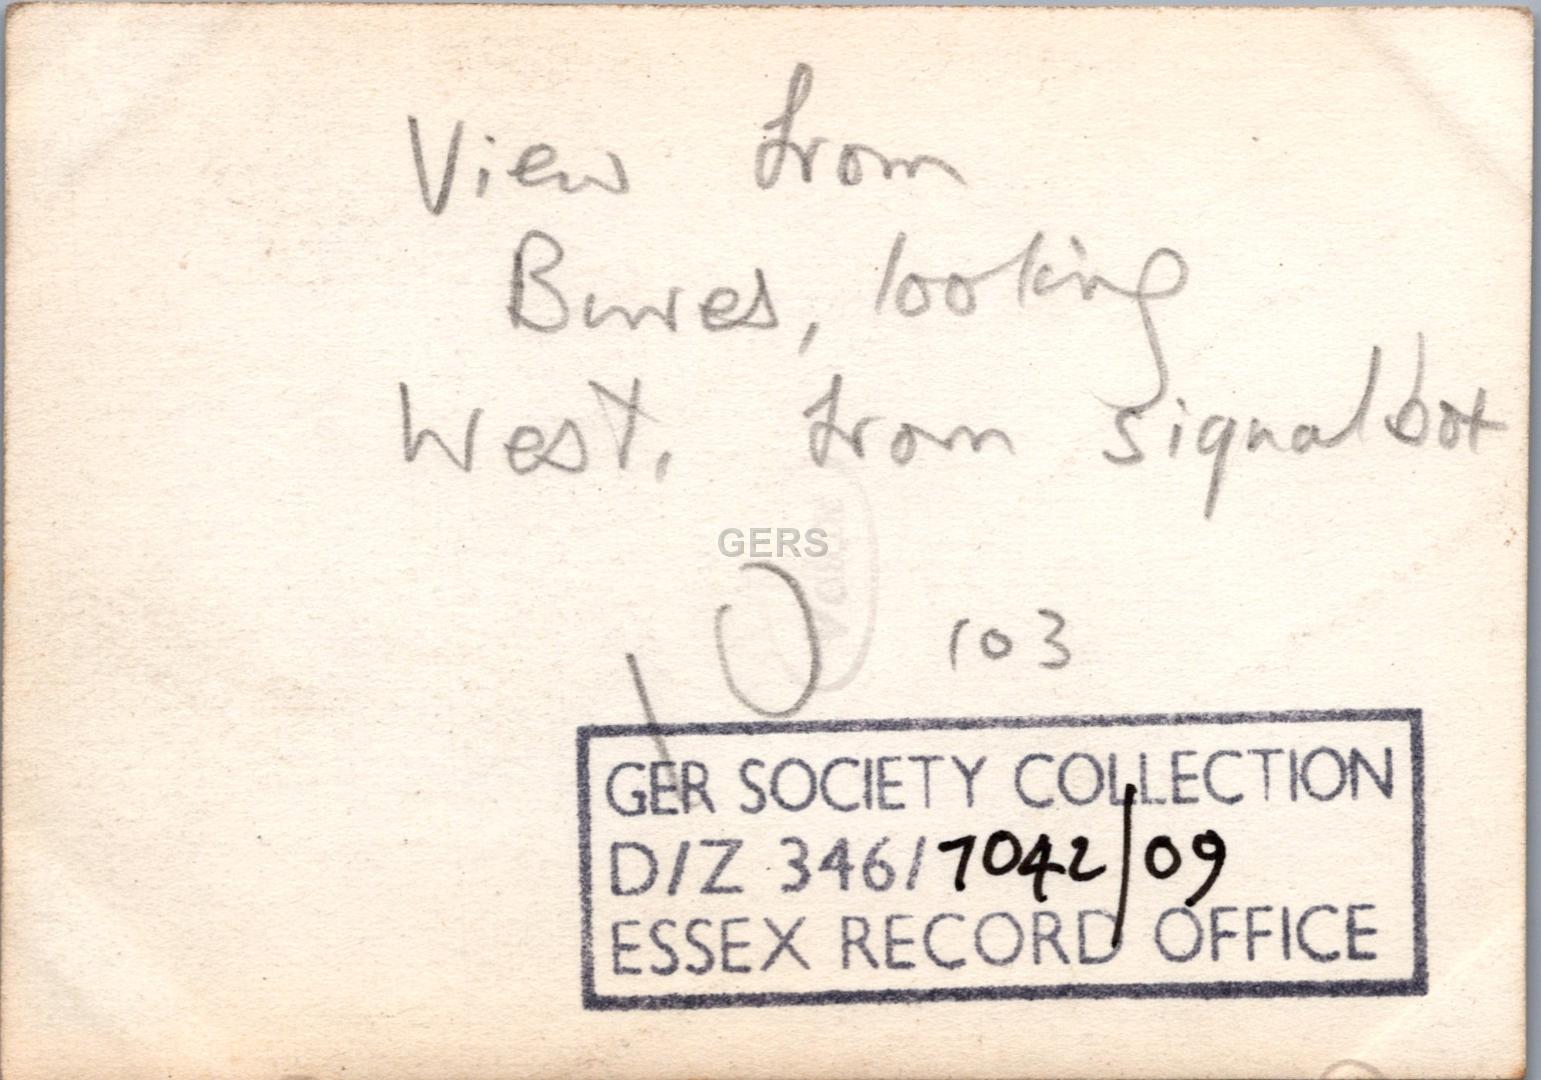 View from
Bures, looking
West. from signal box
GERS
103
GER SOCIETY COLLECTION
D/Z 346/7042/09
ESSEX RECORD OFFICE